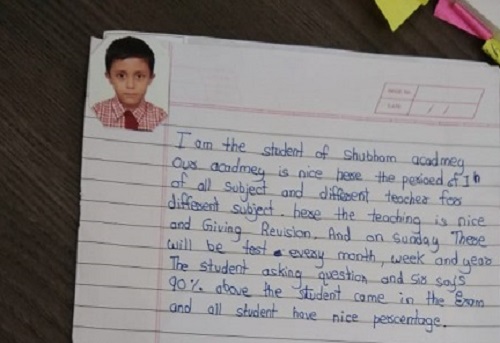 PAGE No.
DATE / /
I am the student of shubham acadmey
Our acadmey is nice here the perioed of 1h
of all subject and different teacher for
different subject. here the teaching is nice
and Giving Revision. And on Sunday There
will be test every month, week and year
The student asking question and sir says
90% above the student came in the Exam
and all student have nice percentage.